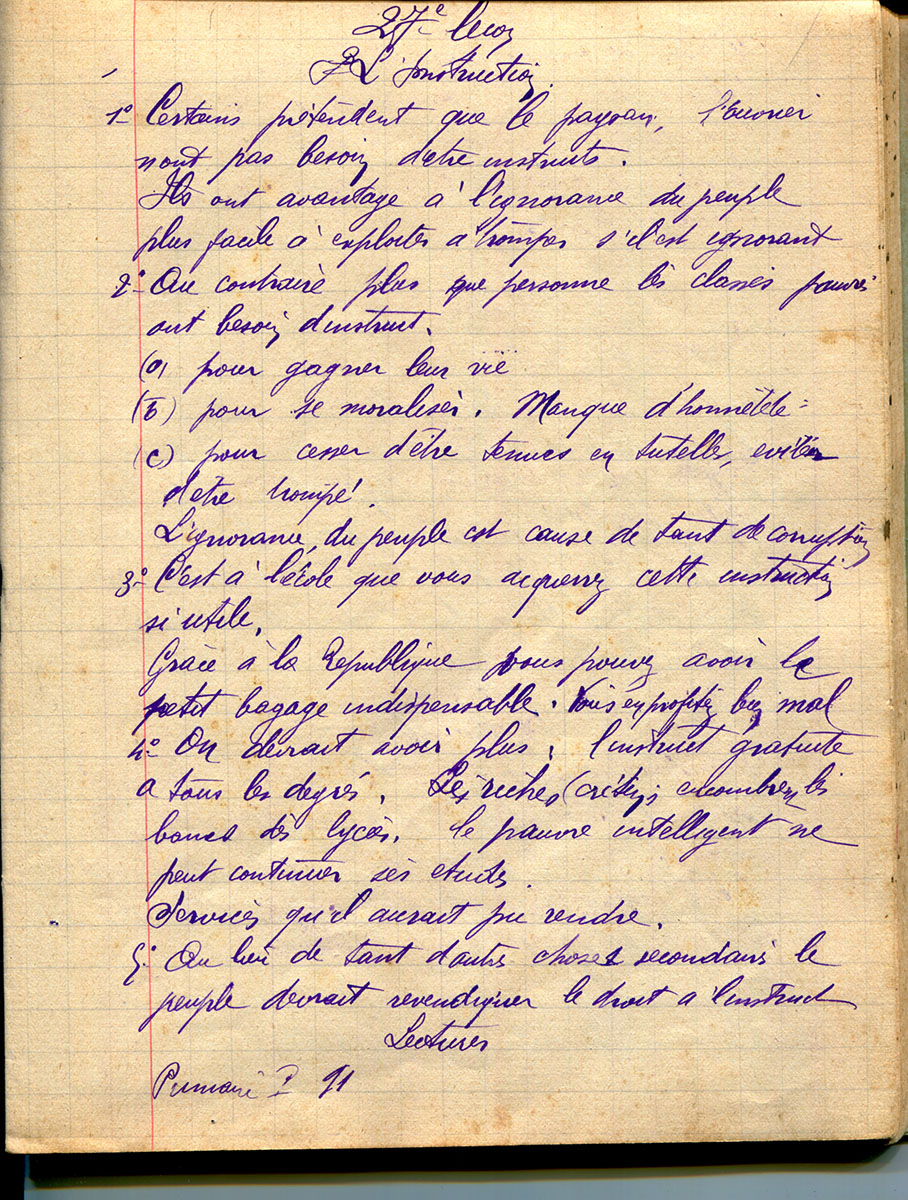 27e leçon
L'Instruction
1° Certains prétendent que le paysan, l'ouvrier
n'ont pas besoin d'être instruits.
Ils ont avantage à l'ignorance du peuple
plus facile à exploiter a tromper s'il est ignorant
2° Au contraire plus que personne les classes pauvres
ont besoin d'instruct.
(a) pour gagner leur vie
(b) pour se moraliser. Manque d'honnêteté =
(c) pour cesser d'être tenues en tutelle, eviter
d'etre trompé.
L'ignorance du peuple est cause de tant de corruption
3° C'est à l'école que vous acquerrez cette instruction
si utile.
Grâce à la Republique vous pouvez avoir le
petit bagage indispensable. Vous en profitez bien mal
4° On devrait avoir plus, l'instruct gratuite
a tous les degrés. Les riches (crétins encombrent les
bancs des lycées. le pauvre intelligent ne
peut continuer ses etudes.
Services qu'il aurait pu rendre.
5° Au lieu de tant d'autres choses secondaires le
peuple devrait revendiquer le droit a l'instruct
Lectures
Primaire P 91